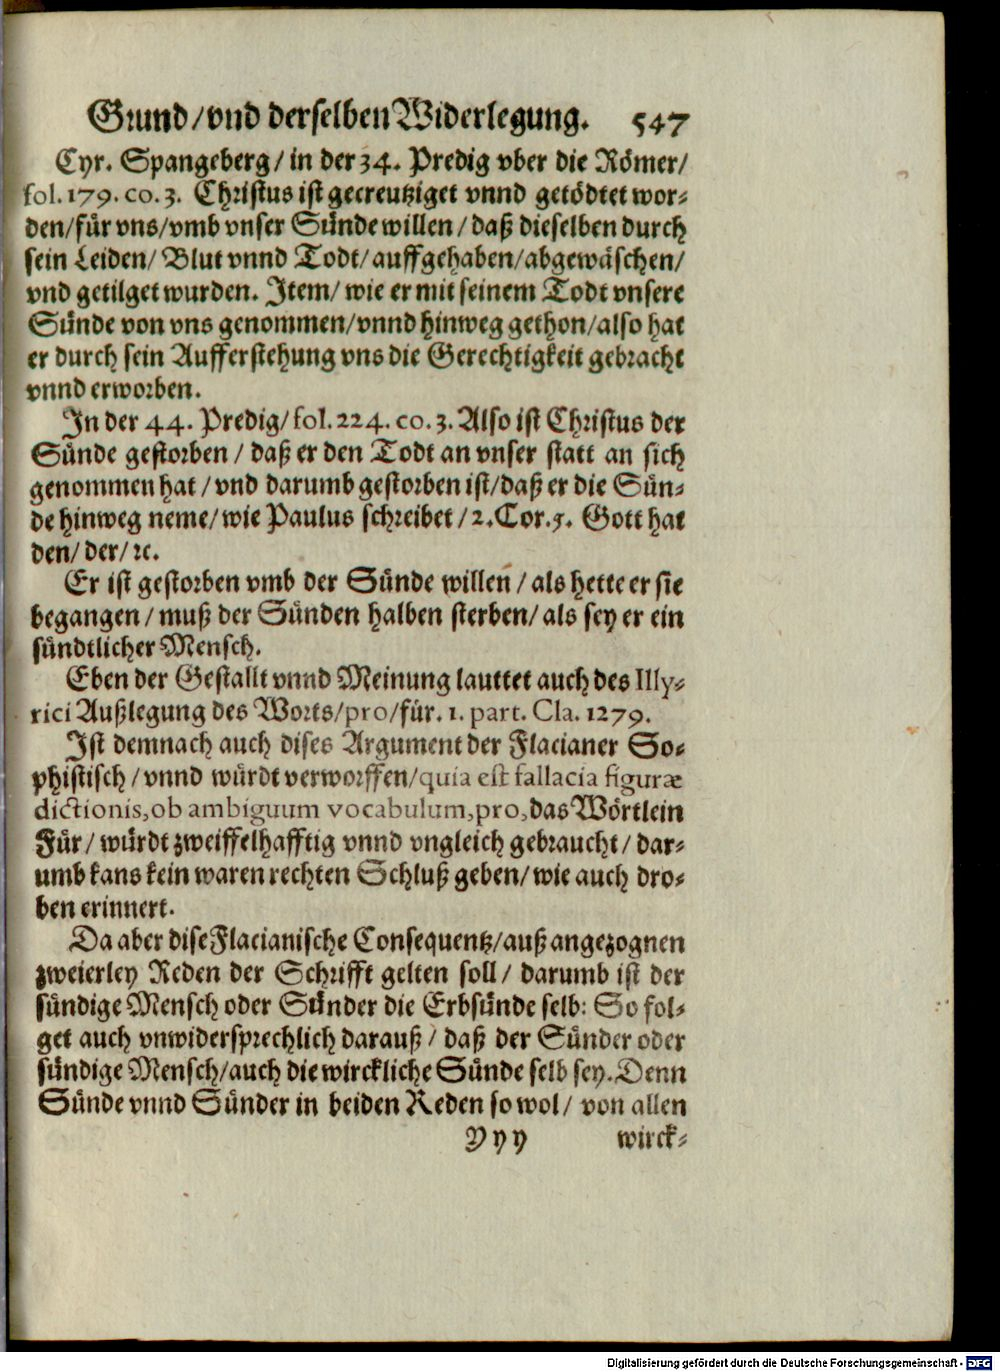 Grund/vnd derselben Widerlegung. 547
Cyr. Spangeberg/in der 34. Predig vber die Römer/
fol. 179. co. 3. Christus ist gecreutziget vnnd getödtet wor-
den/für vns/vmb vnser Sünde willen/daß dieselben durch
sein Leiden/Blut vnnd Todt/auffgehaben/abgewäschen/
vnd getilget wurden. Item/wie er mit seinem Todt vnsere
Sünde von vns genommen/vnnd hinweg gethon/also hat
er durch sein Aufferstehung vns die Gerechtigkeit gebracht
vnnd erworben.
In der 44. Predig/fol. 224. co. 3. Also ist Christus der
Sünde gestorben/daß er den Todt an vnser statt an sich
genommen hat/vnd darumb gestorben ist/daß er die Sün-
de hinweg neme/wie Paulus schreibet/2. Cor. 5. Gott hat
den/der/ꝛc.
Er ist gestorben vmb der Sünde willen/als hette er sie
begangen/muß der Sünden halben sterben/als sey er ein
sündtlicher Mensch.
Eben der Gestallt vnnd Meinung lauttet auch des Illy-
rici Außlegung des Worts/pro/für. 1. part. Cla. 1279.
Ist demnach auch dises Argument der Flacianer So-
phistisch/vnnd würdt verworffen/quia est fallacia figuræ
dictionis, ob ambiguum vocabulum, pro, das Wörtlein
Für/würdt zweiffelhafftig vnnd vngleich gebraucht/dar-
umb kans kein waren rechten Schluß geben/wie auch dro-
ben erinnert.
Da aber dise Flacianische Consequentz/auß angezognen
zweierley Reden der Schrifft gelten soll/darumb ist der
sündige Mensch oder Sünder die Erbsünde selb: So fol-
get auch vnwidersprechlich darauß/daß der Sünder oder
sündige Mensch/auch die wirckliche Sünde selb sey. Denn
Sünde vnnd Sünder in beiden Reden so wol/von allen
Yyy wirck-
Digitalisierung gefördert durch die Deutsche Forschungsgemeinschaft - DFG